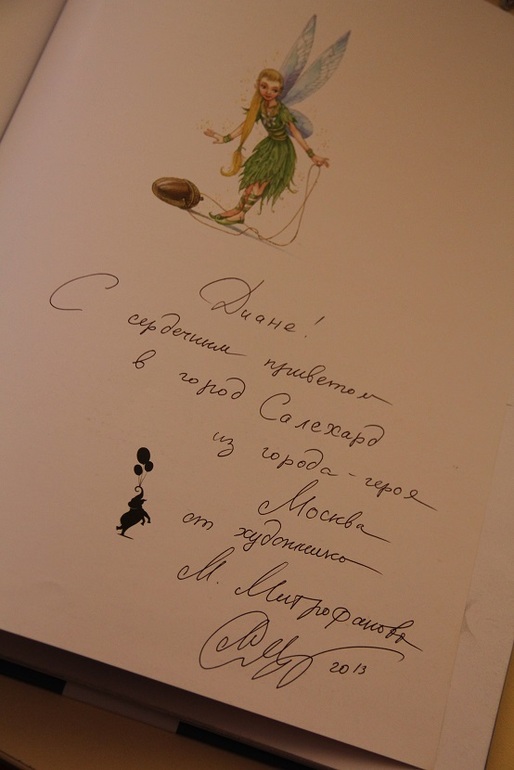 Диане!
С сердечным приветом
в город Салехард
из города-героя
Москва
от художника
М. Митрофанова
2013